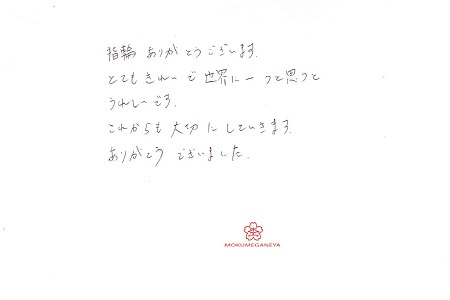 指輪 ありがとうございます.
とてもきれーで 世界に一つと思うと
うれしーです.
これからも 大切 に していきます.
ありがとう ございました.
MOKUMEGANEYA